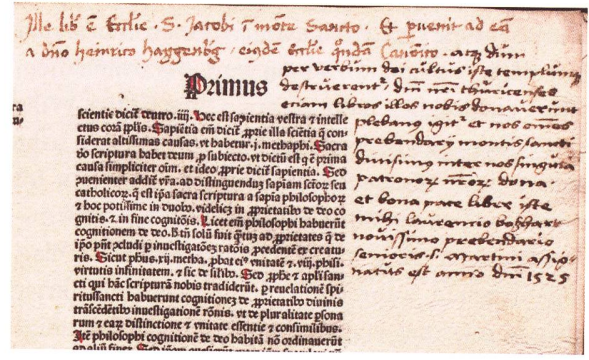 Ille lib̃ ẽ Ecclie̅ . S . Jacobi ĩ mõte Sancto . Et pervenit ad eã
a dño heinrico Haggenb̃g , eiusdem Ecclie̅ qñdam Canonico . atq̢ dum
per verbum dei cultus iste templumq̢
destruerent², dm̄ nr̄i thuricenses
etiam libros illos nobis donaverunt
plebanq̢ igit² et nos omnes
prebendarij montis sancti
divisimus inter nos singula
patronoꝝ nr̄oꝝ dona
et bona pace liber iste
mihi laurencio boßhart
novissimo prebendario
senioris . s. martini assig-
natus est anno dm̄ 1525
Primus
scientie dicit̃ deutro. iiij. Hec est sapientia vestra ⁊ intelle
ctus corã pplis. Sapiẽtia em̃ dicit̃ ꝓprie illa sciẽtia q̃ con
siderat altissimas causas. vt habetur .j. methaphi. Sacra
v̊o scriptura habet deum ꝓ subiecto. vt dictũ est q̃ ẽ prima
causa simpliciter oim̃. et ideo ꝓprie dicit̃ sapientia. Sed
ꝯuenienter addit̃ vr̃a. ad distinguendũ sapiam sctõrum seu
catholicoꝝ. q̃ est ip̃a sacra scriptura a sapia philosophoꝝ
⁊ hoc potissime in duob̃. videlicet in ꝓprietatib̃ de deo co
gnitis. ⁊ in fine cognitõis. Licet em̃ philosophi habuerũt
cognitionem de deo. hm̃ solũ fuit q̃ntum ad ꝓprietates q̃ de
ip̃o pñt ꝯcludi ꝑ inuestigatõez ratõis. ꝓcedentẽ ex creatu
ris. Sicut phus. xij. metha. ꝓbat ei⁹ vnitatẽ ⁊ .viij. phisi.
virtutis infinitatem. ⁊ sic de silib̃. Sed ꝓphe ⁊ apl̃i san
cti qui hãc scripturã nobis tradiderũt. ꝑ reuelationẽ spi
ritussancti habuerunt cognitionez de ꝓprietatib̃ diuinis
trãscẽdẽtib̃ inuestigationẽ rõnis. vt de pluralitate ꝑsona
rum ⁊ earum distinctione ⁊ vnitate essentie ⁊ consimilibus.
Itẽ philosophi cognitionẽ de deo habitã nõ ordinauerũt